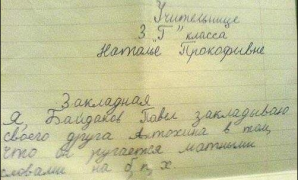 Учительнице
3 "Г" класса
Наталье Прокофивне
Закладная
Я, Байдаков Павел закладываю
своего друга Антохина в том,
что он ругается матными
словами на б, п, х.